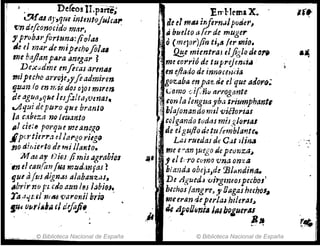 Deseos II. parte,
Mas ay, que intento sulcar
vn desconocido mar,
y probar fortuna: si olas
de el mar de mi pecho solas
me bastan para anegar?
De cadme en secas arenas
mi pecho arroje, y se admiren
quan lo en mis dos ojos miren
de agua, que les falta, venas,
Aqui de puro que branto
la cabeza no leuanto
al cielo porque me anego
por tierra el largo riego
no di cierto de mi llanto.
Mas ay Dios si mis agrabios
en el cansan sus mudanzas?
que à sus dignas alabanzas,
abrir no puedo aun los labios,
Ya aqui el mas varonil brio
Emblema X.
de el mas infernal poder,
à buelto aser de muger
ò (mejor) sin ti, a ser mio.
Que mientras el siglo de oro
me corriò de tu presencia
en estado de innocencia
gozaba en paz de el que adoro:
Como si no arrogante
con la lengua yba triumphante
blasonando mil victorias
colgando todas mis glorias
de el gusto de tu semblante.
Las ruedas de Catalina
me eran juego de peonza,
y el toro como vna onza
blanda obeja, de Blandina.
De Agueda virgineos pechos
hechos sangre, y llagas hechos,
me eran de perlas hileras,
de Apolonia las hogueras
© Biblioteca Nacional de España
© Biblioteca Nacional de España